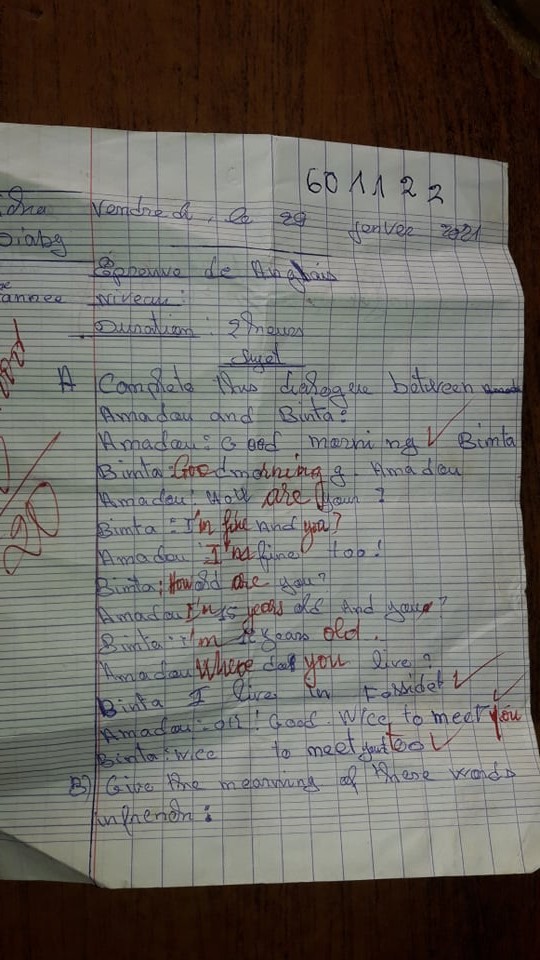 601122
Vendredi, le 29 Janvier 2021
Diabg
Epreuve de Anglais
année niveau:
Duration: 2 heurs
Sujet
A Complete this dialogue between
Amadou and Binta:
Amadou: Good morning Binta
Binta: Good morning Amadou
Amadou: How are your?
Binta: I'm fine And you?
Amadou: I'm fine too!
Binta: How old are you?
Amadou I'm 15 years old And you?
Binta: i'm years old.
Amadou Where do you live?
Binta I live in
Amadou: oh! Good. Nice to meet you
Binta: Nice to meet you too
B) Give the meaning of these words
in french:
20